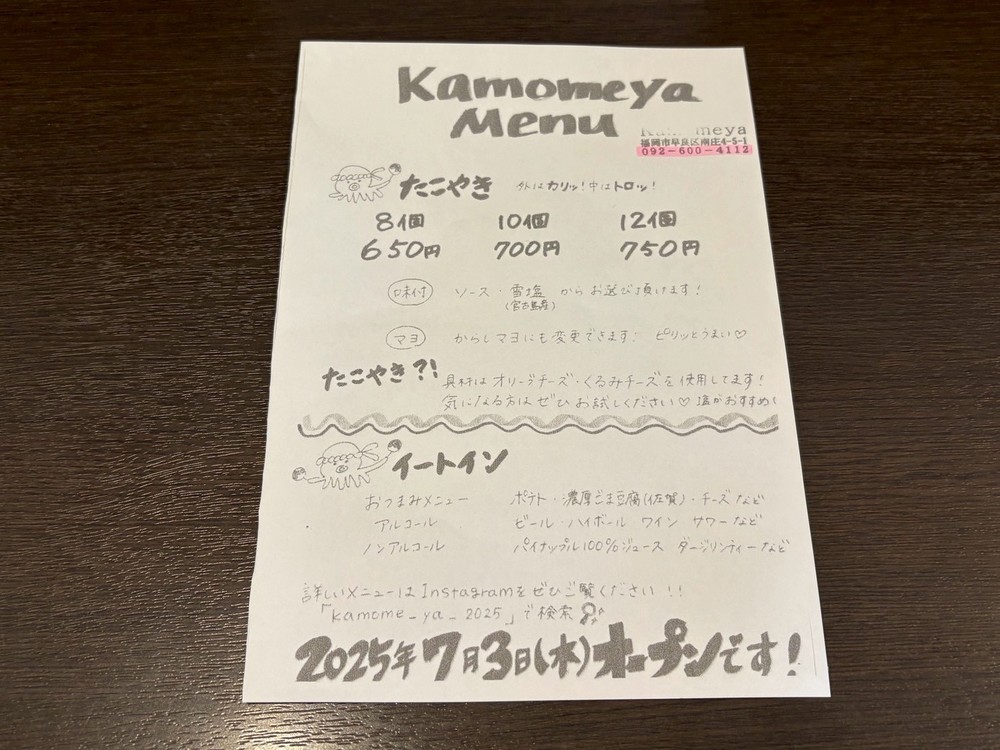 Kamomeya
Menu
meya
福岡市早良区南庄4-5-1
092-600-4112
たこやき 外はカリッ!中はトロッ!
8個 10個 12個
650円 700円 750円
味付 ソース・雪塩からお選び頂けます!
(宮古島産)
マヨ からしマヨにも変更できます! ピリッとうまい♡
たこやき?! 具材はオリーブチーズ・くるみチーズを使用してます!
気になる方はぜひお試しください♡ 塩がおすすめ!
イートイン
おつまみメニュー ポテト・濃厚ごま豆腐(佐賀)・チーズなど
アルコール ビール・ハイボール ワイン サワーなど
ノンアルコール パイナップル100%ジュース ダージリンティーなど
詳しいメニューはInstagramをぜひご覧ください!!
「kamome_ya_2025」で検索
2025年7月3日(木)オープンです!